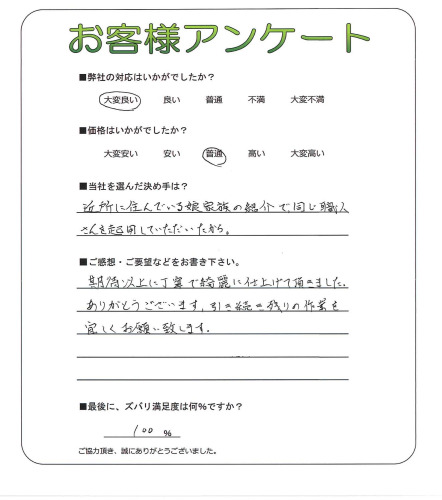 お客様アンケート
■弊社の対応はいかがでしたか？
大変良い 良い 普通 不満 大変不満
■価格はいかがでしたか？
大変安い 安い 普通 高い 大変高い
■当社を選んだ決め手は？
近所に住んでいる娘家族の紹介で、同じ職人
さんを起用していただいたから。
■ご感想・ご要望などをお書き下さい。
期待以上に丁寧で綺麗に仕上げて頂きました。
ありがとうございます。引き続き残りの作業を
宜しくお願い致します。
■最後に、ズバリ満足度は何％ですか？
100 %
ご協力頂き、誠にありがとうございました。